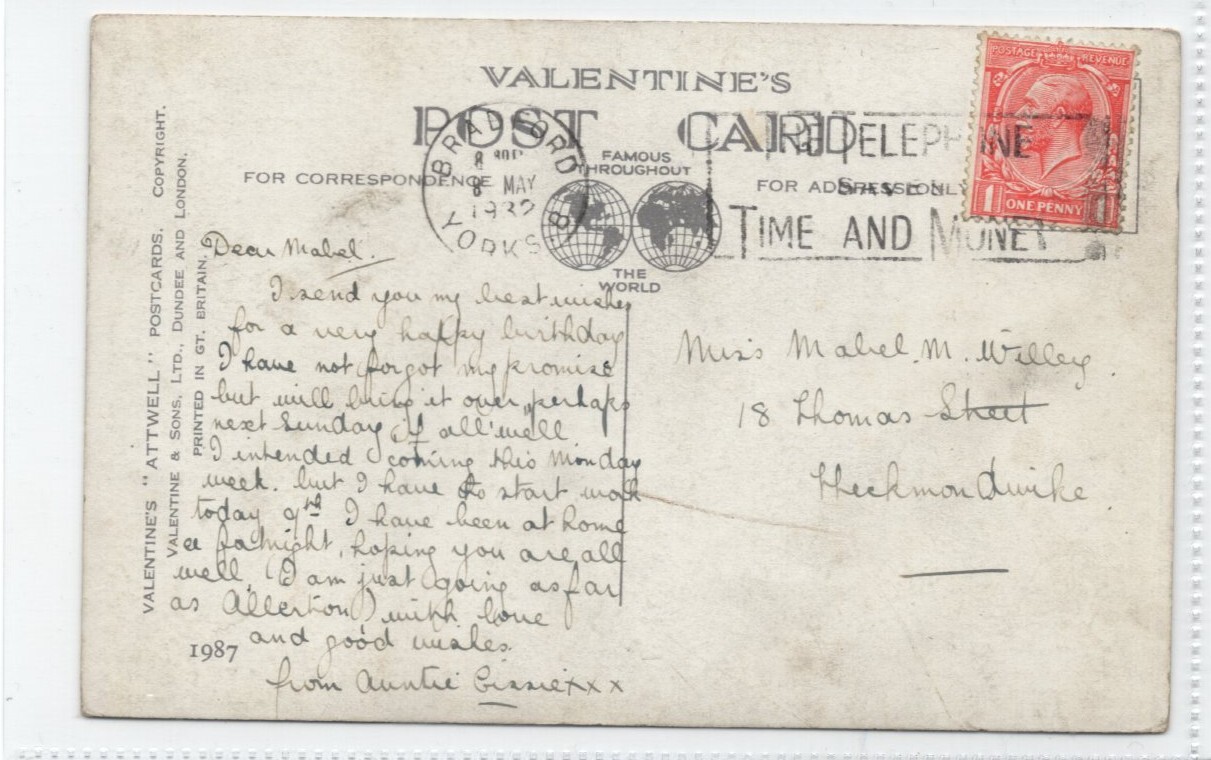 VALENTINE'S
POST CARD
FAMOUS
THROUGHOUT
THE
WORLD
FOR CORRESPONDENCE
FOR ADDRESS ONLY
BRADFORD
8 MAY
1932
YORKS 8
THE TELEPHONE
SAVES
TIME AND MONEY
POSTAGE REVENUE
1 ONE PENNY 1
VALENTINE'S "ATTWELL" POSTCARDS. COPYRIGHT.
VALENTINE & SONS, LTD., DUNDEE AND LONDON.
PRINTED IN GT. BRITAIN.
Dear Mabel.
I send you my best wishes
for a very happy birthday
I have not forgot my promise
but will bring it over, perhaps
next Sunday if all well.
I intended coming this Monday
week. but I have to start work
today 9th I have been at home
a fortnight, hoping you are all
well, I am just going as far
as Allerton with love
and good wishes.
from Auntie Cissie xxx
1987
Miss Mabel. M. Willey.
18 Thomas Street
Heckmondwike